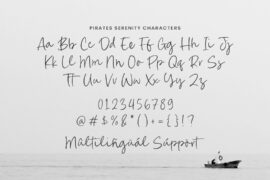 PIRATES SERENITY CHARACTERS
Aa Bb Cc Dd Ee Ff Gg Hh Ii Jj
Kk Ll Mm Nn Oo Pp Qq Rr Ss
Tt Uu Vv Ww Xx Yy Zz
0123456789
@#$%&*()+={}!?
Multilingual Support